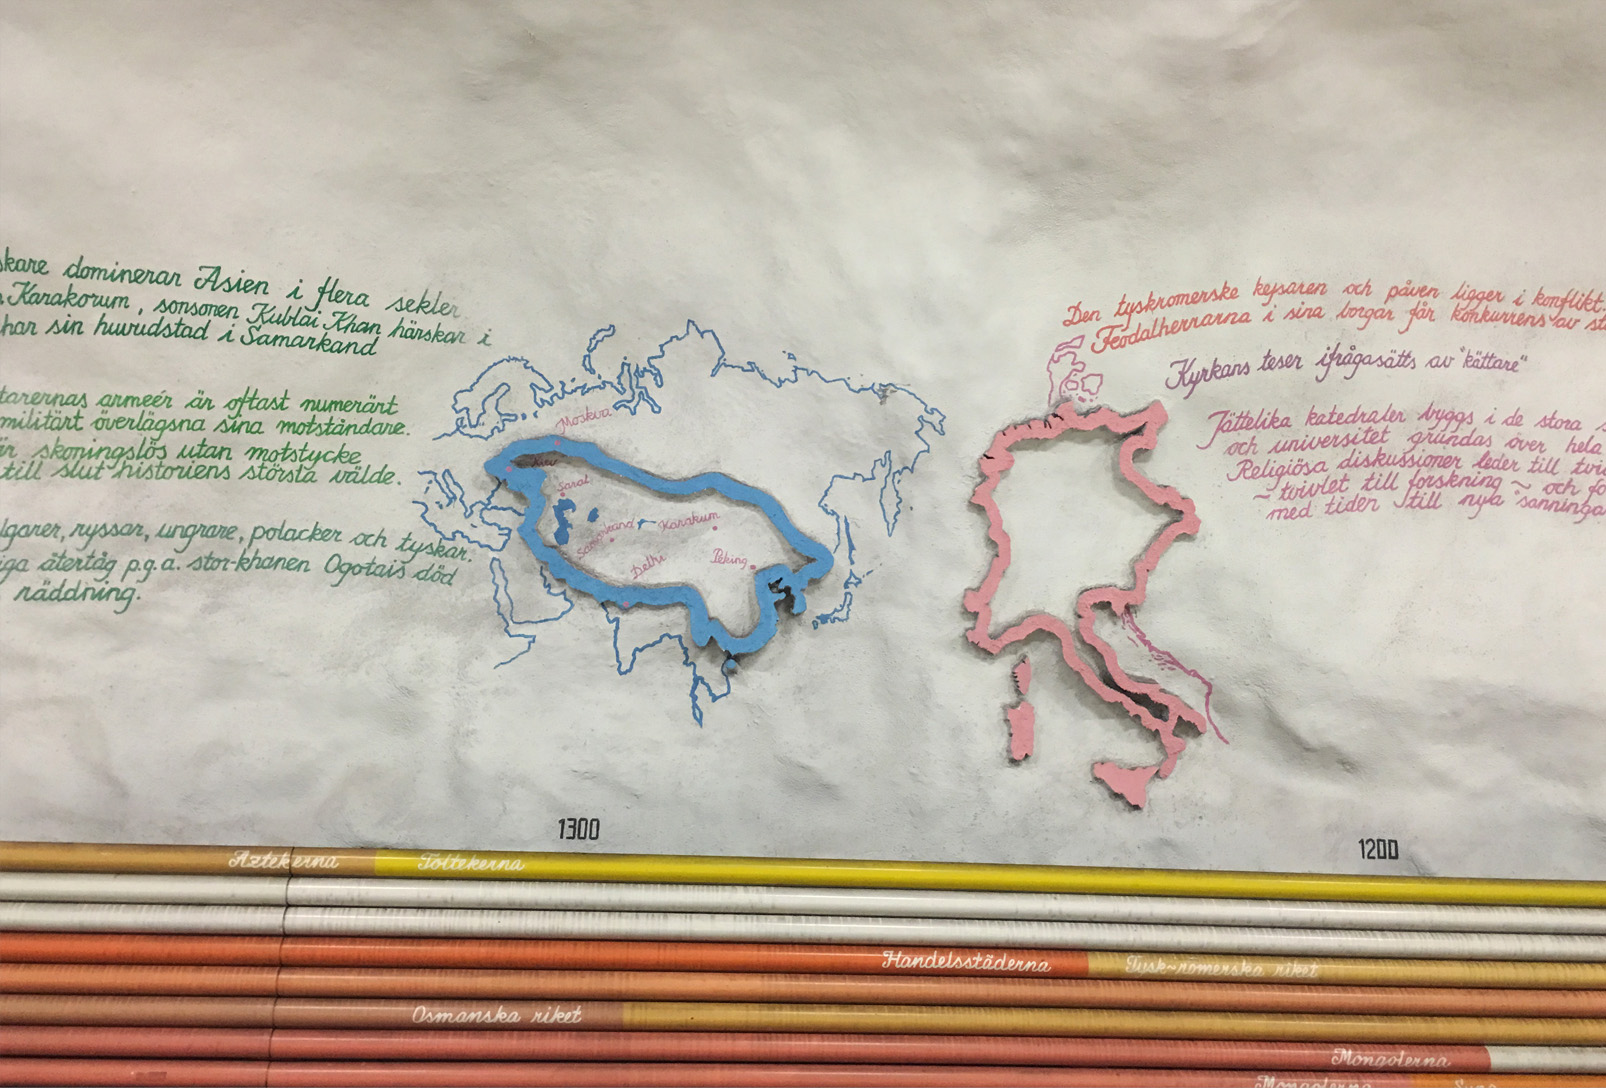 skare dominerar Asien i flera sekler
Karakorum, sonsonen Kublai Khan härskar i
har sin huvudstad i Samarkand
tarernas armeér är oftast numerärt
militärt överlägsna sina motståndare.
är skoningslös utan motstycke
till slut historiens största välde.
lgarer, ryssar, ungrare, polacker och tyskar.
iga återtåg p.g.a. stor-khanen Ogotais död
räddning.
Moskva
Kiev
Sarai
Samarkand
Karakum
Delhi
Peking
Den tyskromerske kejsaren och påven ligger i konflikt.
Feodalherrarna i sina borgar får konkurrens av st
Kyrkans teser ifrågasätts av "kättare"
Jättelika katedraler byggs i de stora s
och universitet grundas över hela
Religiösa diskussioner leder till tvi
~ tvivlet till forskning ~ och fo
med tiden till nya "sanningar
1300
1200
Aztekerna
Toltekerna
Handelsstäderna
Tysk-romerska riket
Osmanska riket
Mongolerna
Mongolerna